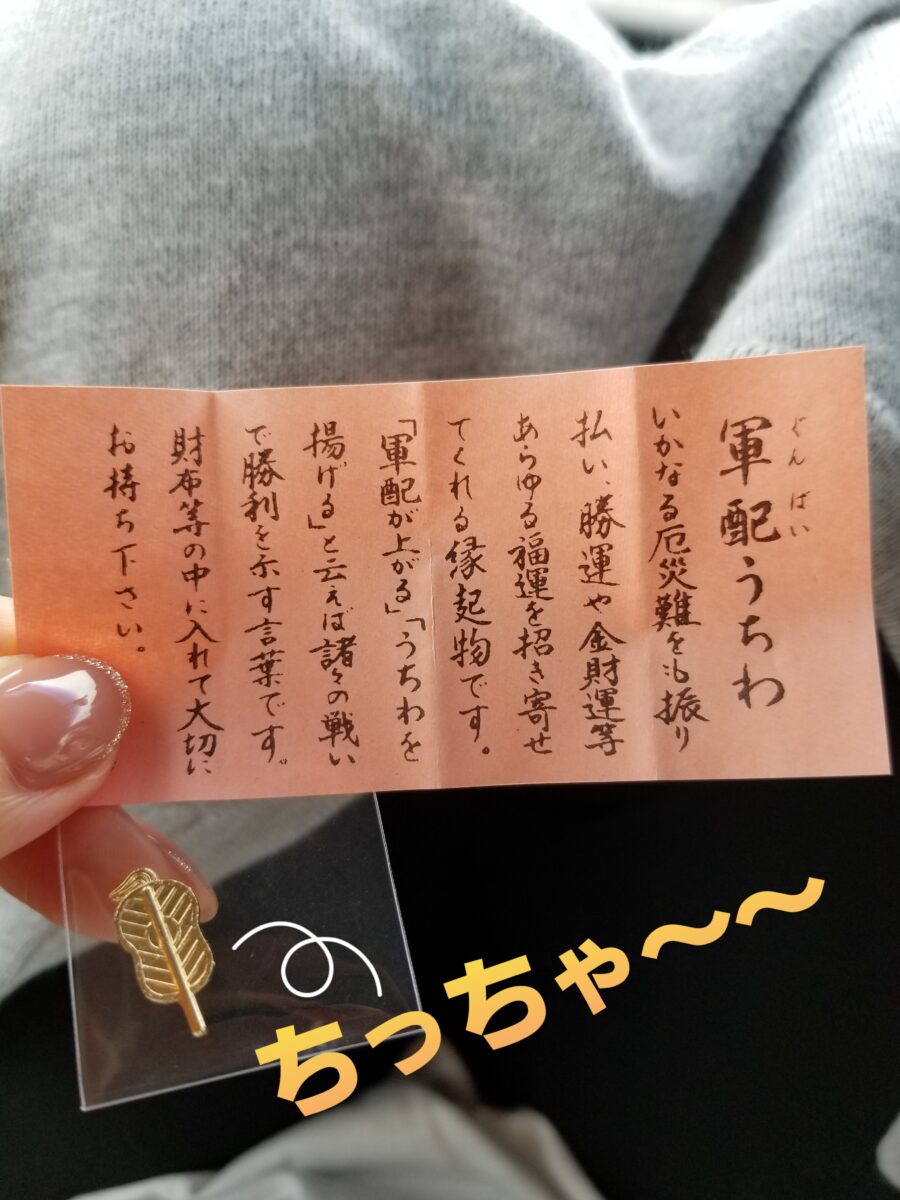 ぐんばい
軍配うちわ
いかなる厄災難をも振り
払い、勝運や金財運等
あらゆる福運を招き寄せ
てくれる縁起物です。
「軍配が上がる」「うちわを
揚げる」と云えば諸々の戦い
で勝利を示す言葉です。
財布等の中に入れて大切に
お持ち下さい。
ちっちゃ〜〜